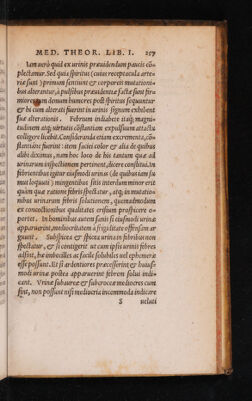 MED. THEOR. LIB. I. 257
Iam uerò quid ex urinis præuidendum paucis cõ-
plectamur. Sed quia spiritus (cuius receptacula arte-
riæ sunt) primum sentiunt & corporeis mutationi-
bus alterantur, à pulsibus præuidentiæ factæ sunt fir-
miores: dum humores post spiritus sequuntur
& hi cum alterati fuerint in urinis signum exhibent
suæ alterationis. Febrium indicatrix itaq; magni-
tudinem atq; uirtutis costantiam expulsiuam attactu
colligere licebit. Consideranda etiam excrementa, cõ-
siderationi fuerint: item faciei color & alia de quibus
alibi diximus, nam hoc loco de his tantum quæ ad
urinarum inspectionem pertinent, dicere constitui. In
febrientibus igitur eiusmodi urinis (de quibus iam su-
mus loquuti) mingentibus sitis interdum minor est
quàm quæ ratione febris spectatur, atq; in mutatio-
nibus urinarum febris solutionem, quemadmodum
ex concoctionibus qualitates crisium prospicere o-
portet. In hominibus autem sanis si eiusmodi urinæ
apparuerint, mediocritatem à frigiditate offensam ar-
guunt. Subspicea & spicea urina in febribus non
spectatur, & si contigerit ut cum ipsis urinis febres
adsint, hæ imbecilles ac facile solubiles uel ephemeræ
esse possunt. Et si ardentiores præcesserint & huius-
modi urinæ postea apparuerint febrem solui indi-
cant. Vrinæ subaureæ & subcroceæ mediocres cum
sint, non possunt nisi mediocria incommoda indicare
S ueluti